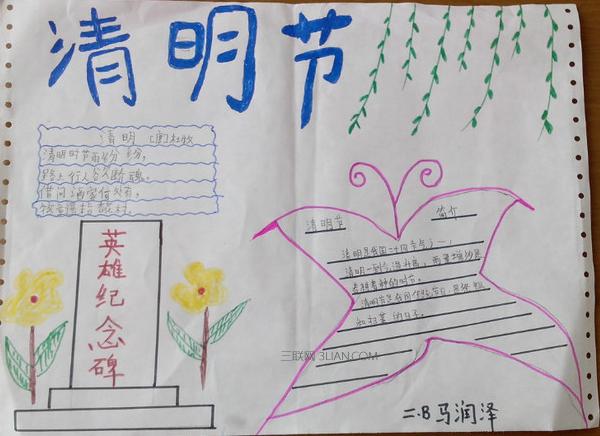 清明节
清明 [唐]杜牧
清明时节雨纷纷,
路上行人欲断魂。
借问酒家何处有,
牧童遥指
英雄纪念碑
清明节 简介
清明是我国二十四节气之一,
清明一到气温升高,雨量增多是
春耕春种的时节。
清明节是我国传统节日,是祭祖
和扫墓的日子。
三联网 3LIAN.COM
二.B 马润泽